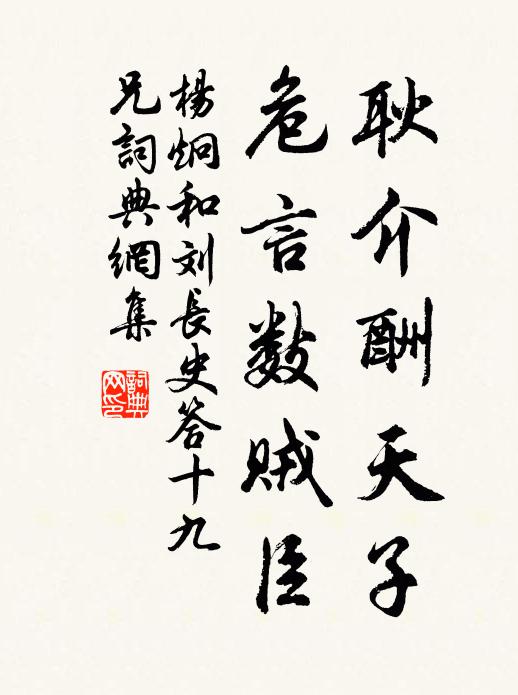 耿介酬天子
危言数贼臣
楊炯和刘長史答十九
兄詞典網集
詞典
网印